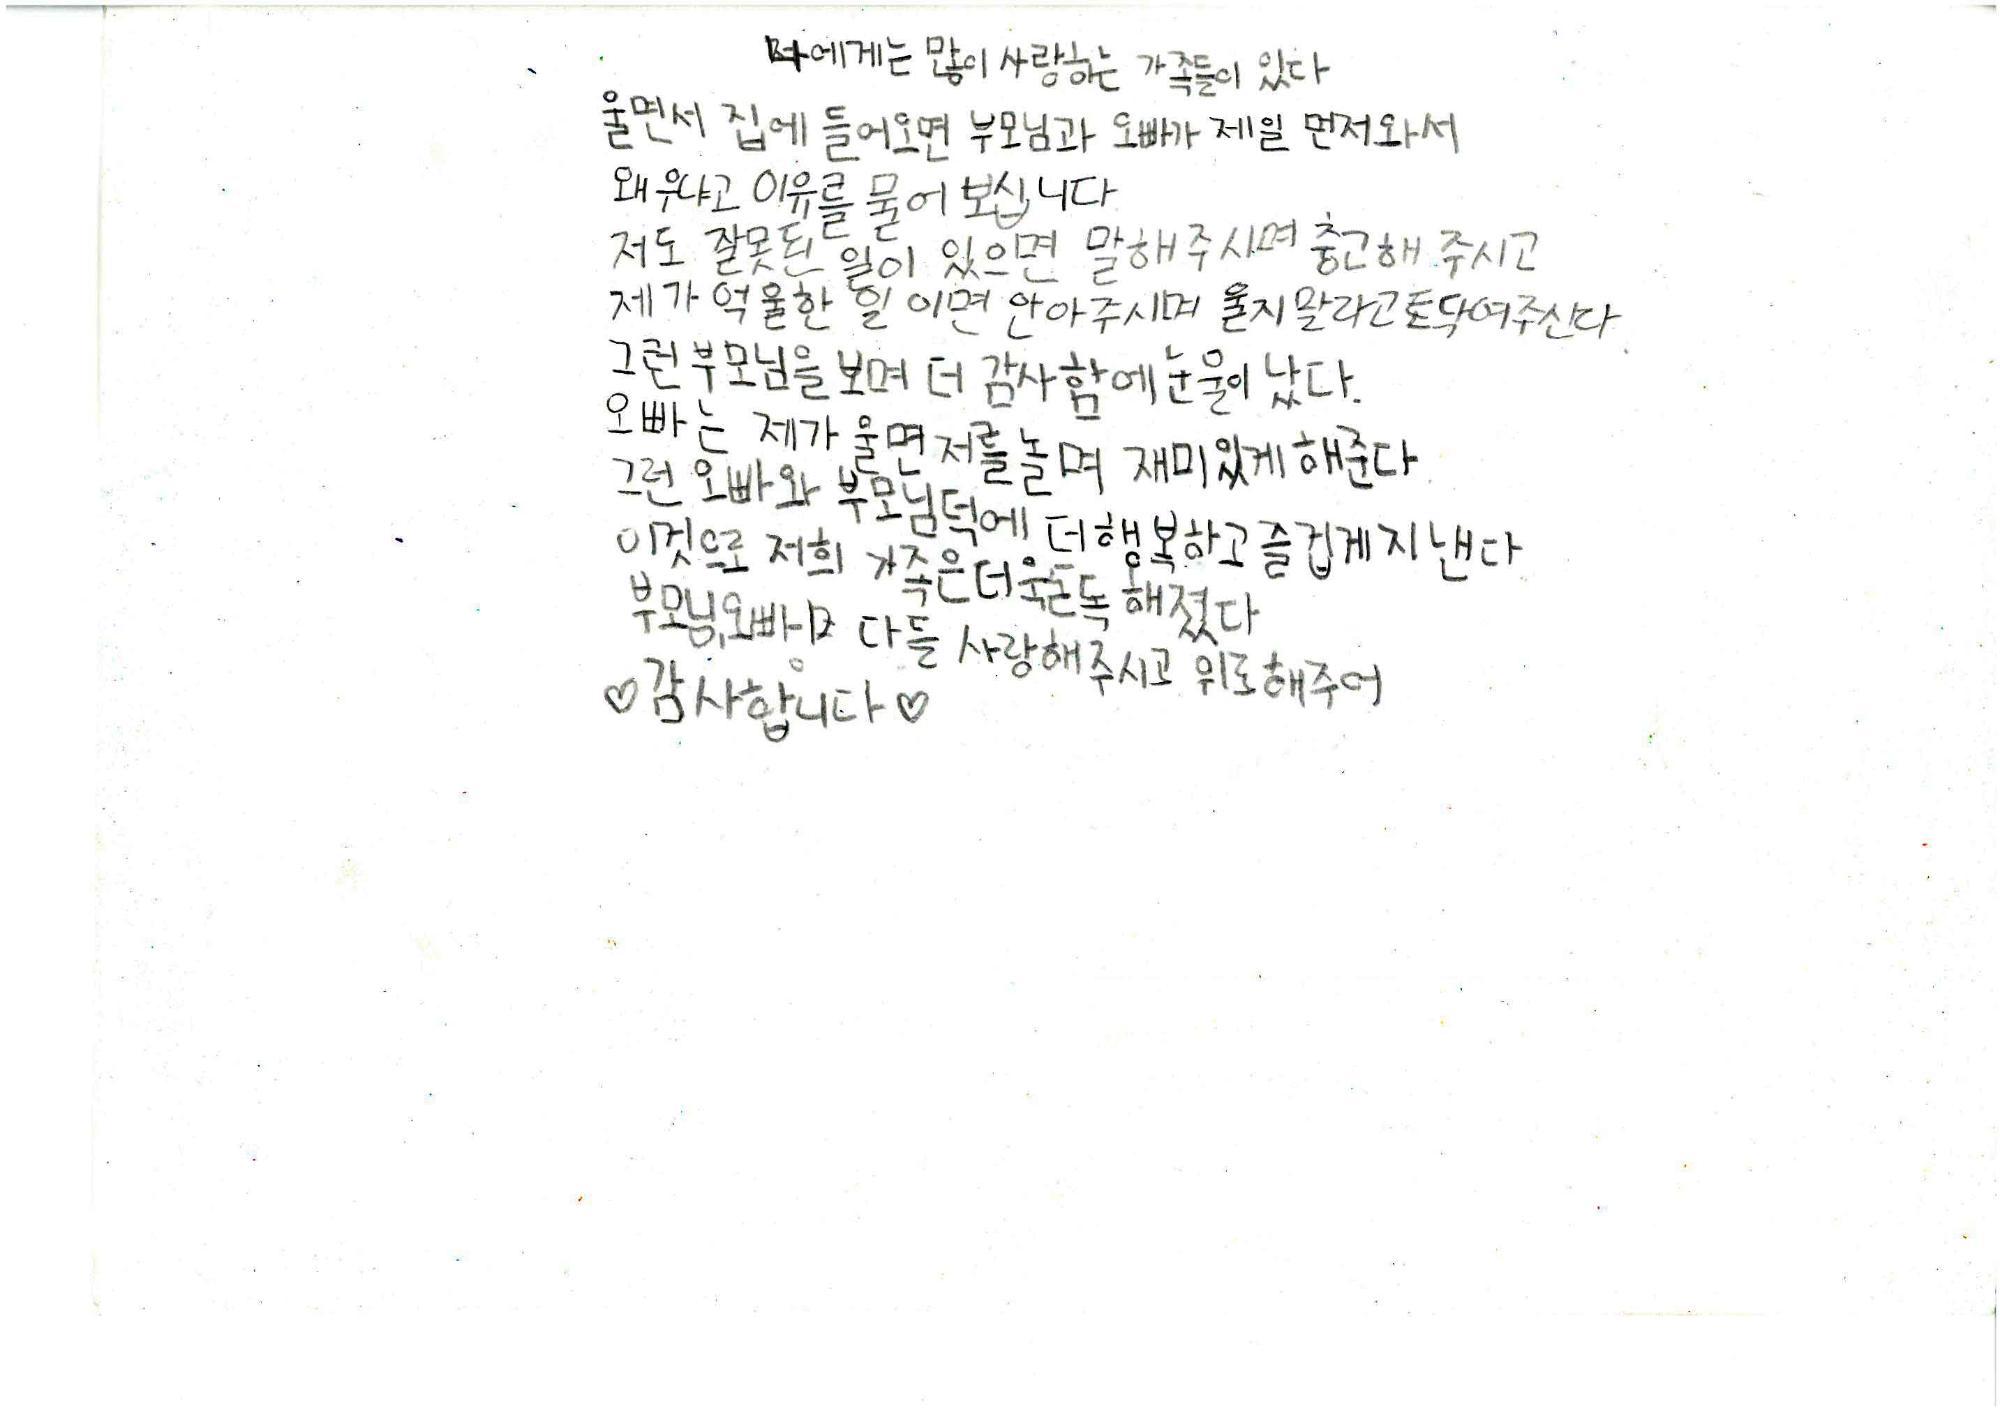 나에게는 많이 사랑하는 가족들이 있다
울면서 집에 들어오면 부모님과 오빠가 제일 먼저와서
왜 우냐고 이유를 물어 보십니다
저도 잘못된 일이 있으면 말해주시며 충고해 주시고
제가 억울한 일 이면 안아주시며 울지말라고토닥여주신다.
그런 부모님을 보며 더 감사함에 눈물이 났다.
오빠는 제가 울면 저를놀며 재미있게해준다
그런 오빠와 부모님덕에 더 행복하고 즐겁게지낸다
이것으로 저희 가족은더욱돈독 해졌다
부모님,오빠 다들 사랑해주시고 위로해주어
♡감사합니다♡